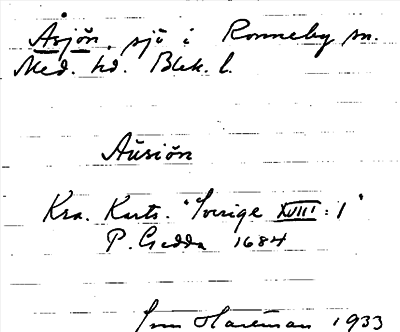 Åsjön, sjö i Ronneby sn.
Med. hd. Blek. l.
Aŭsiön
Kra. Karts. "Sverige XVIII:1"
P. Gedda 1684
1933